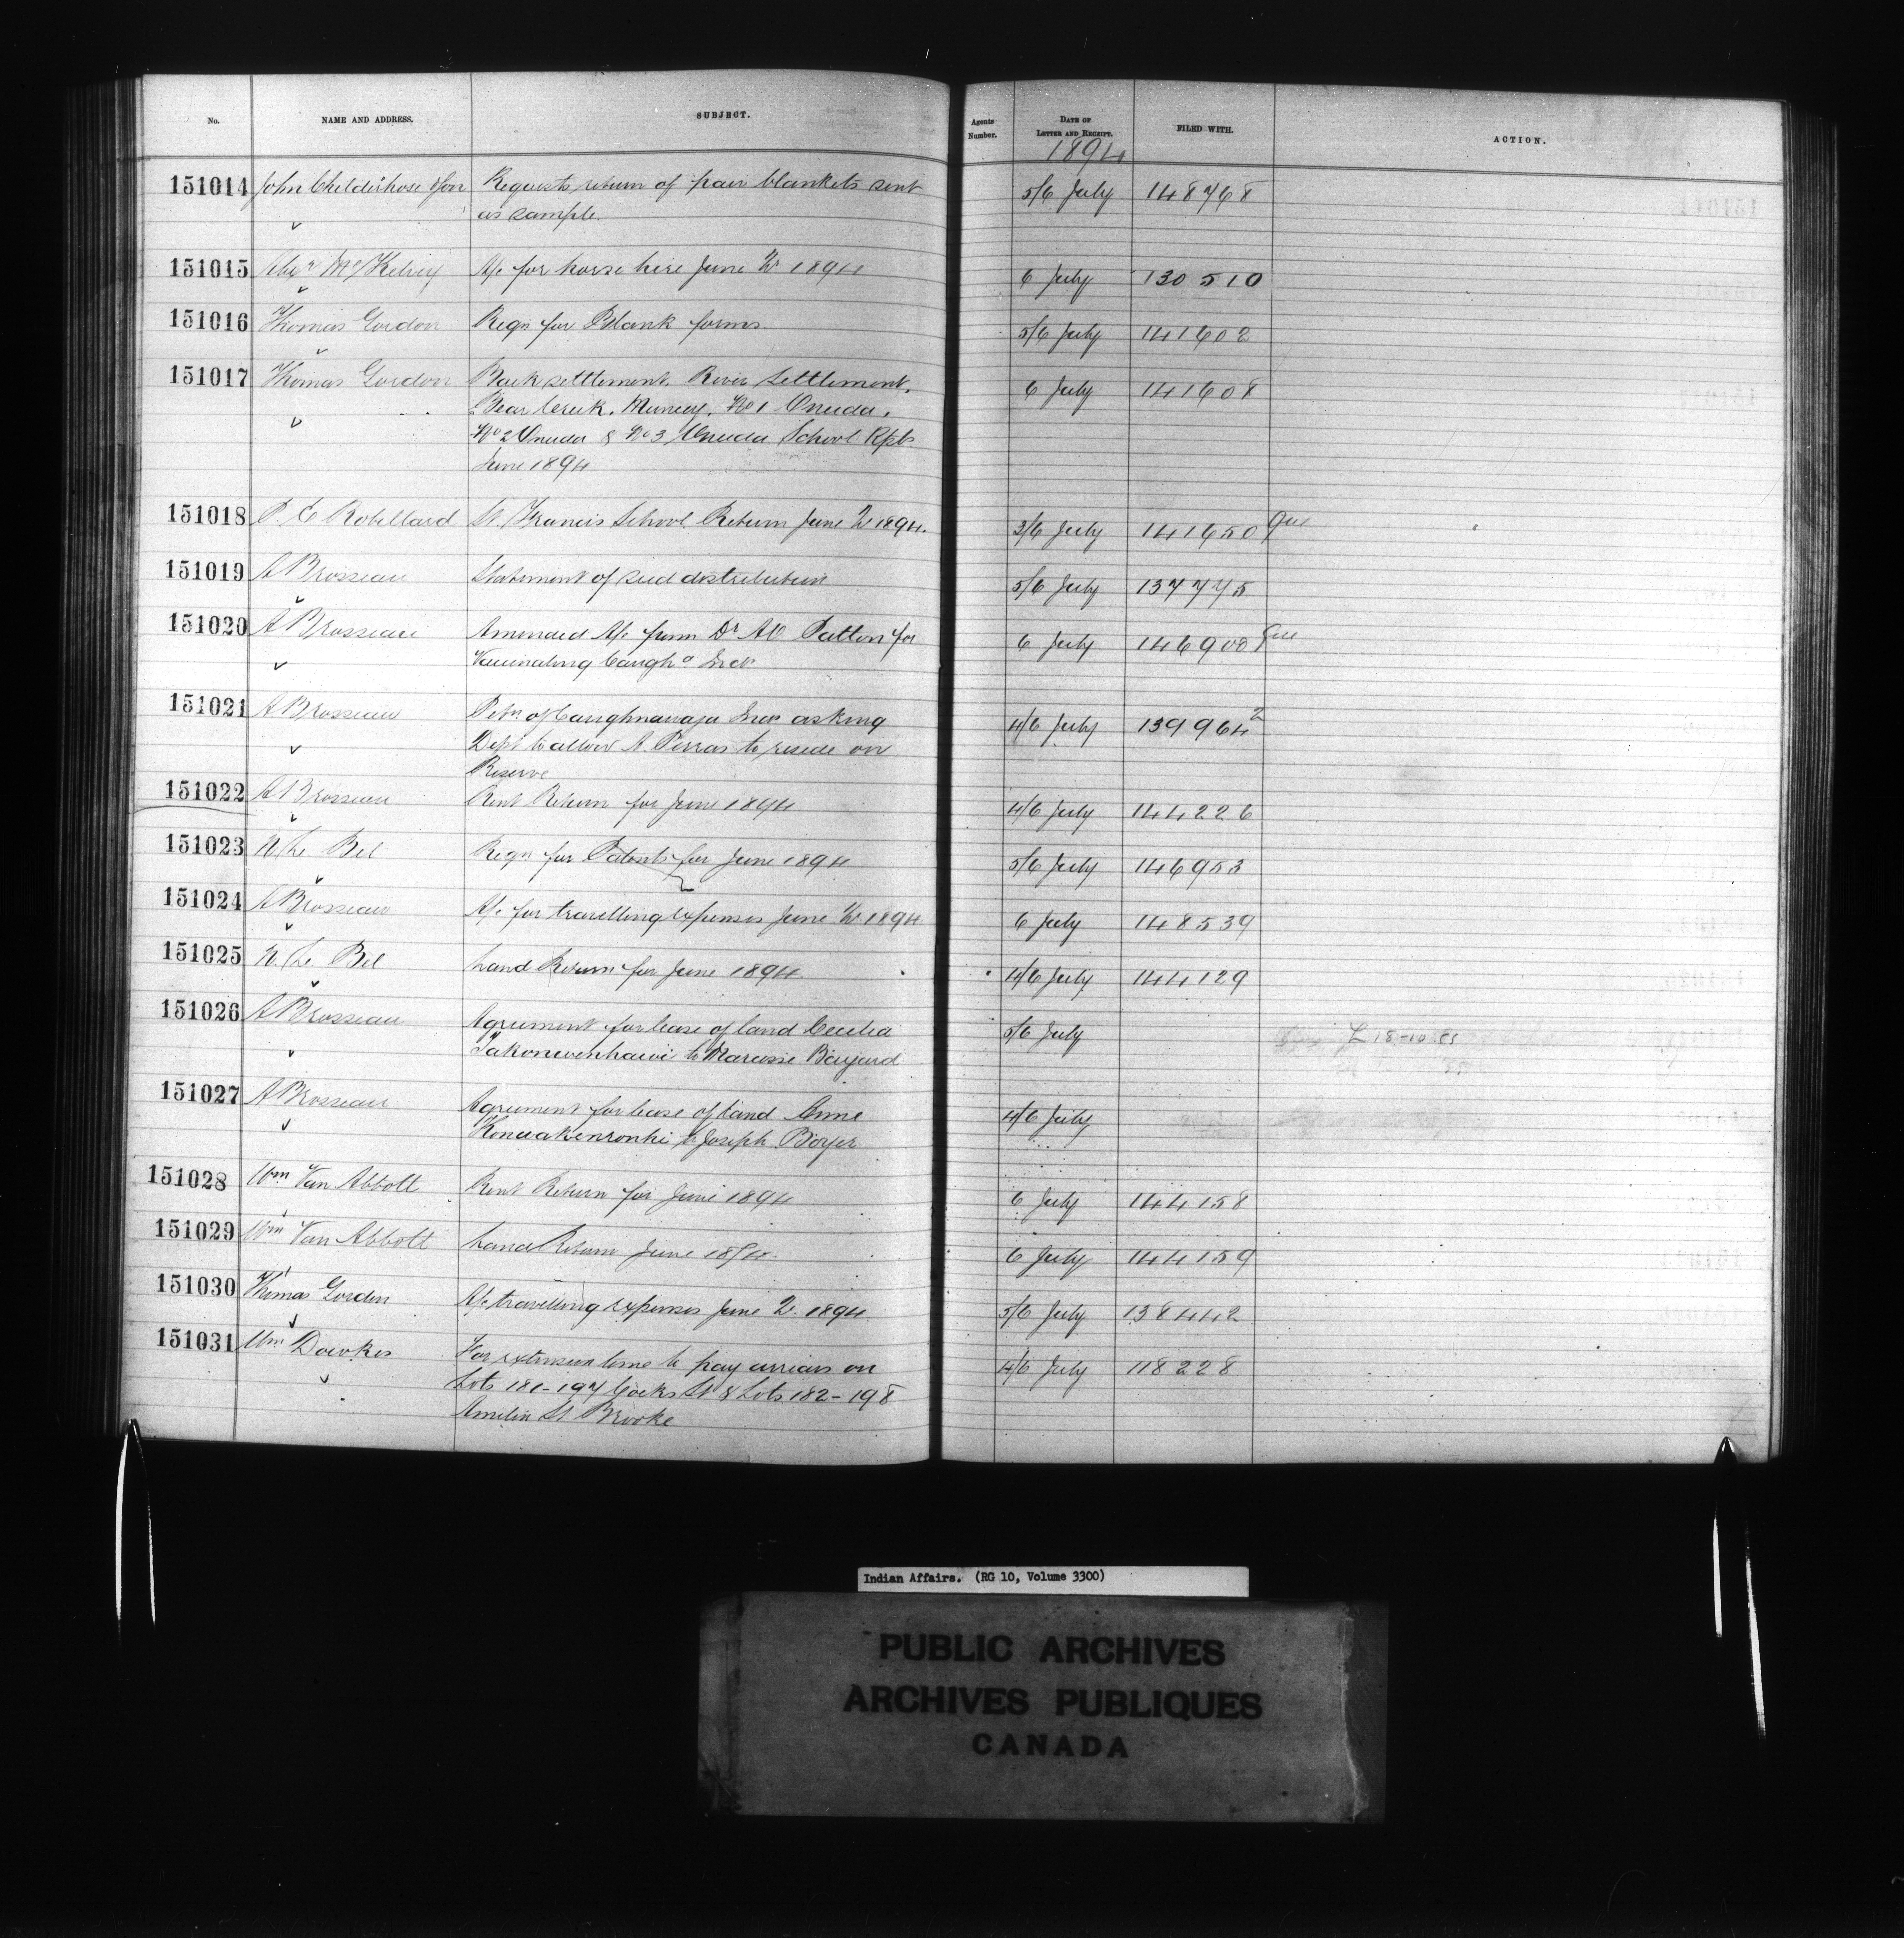 No. NAME AND ADDRESS. SUBJECT. Agents Number. DATE OF LETTER AND RECEIPT. FILED WITH. ACTION.
1894
151014 John Childerhose & Son Requests return of pair blankets sent 5/6 July 148768
as sample
151015 Alexr McKelvey A/c for horse hire June Qr 1894 6 July 130510
151016 Thomas Gordon Reqn for Blank forms 5/6 July 141602
151017 Thomas Gordon Back settlement, River Settlement, 6 July 141608
Bear Creek, Muncey, No 1 Oneida,
No 2 Oneida & No 3 Oneida School Rpts
June 1894
151018 P. E Robillard St Francis School Return June Qr 1894. 3/6 July 141650 Que
151019 A Brosseau Statement of seed distribution 5/6 July 137775
151020 A Brosseau Amended A/c from Dr A O Patton for 6 July 146900 Que
Vaccinating Caugha Inds
151021 A Brosseau Petn of Caughnawaga Inds asking 4/6 July 139964 2
Dept to allow A. Perras to reside on
Reserve
151022 A Brosseau Rent Return for June 1894 4/6 July 144226
151023 N. Le Bel Reqn for Patents for June 1894 5/6 July 146953
151024 A Brosseau A/c for travelling expenses June Qr 1894 6 July 148539
151025 N. Le Bel Land Return for June 1894 4/6 July 144129
151026 A Brosseau Agreement for lease of land Cecilia 5/6 July L 18-10
to Narcisse
151027 A Brosseau Agreement for lease of land Anne 4/6 July
Konwakenronhi to Joseph Boyer
151028 Wm Van Abbott Rent Return for June 1894 6 July 144158
151029 Wm Van Abbott Land Return June 1894. 6 July 144159
151030 Thomas Gordon A/c travelling expenses June Qr. 1894. 5/6 July 138442
151031 Wm Dawkes For extension time to pay arrears on 4/6 July 118228
Lots 181-197 Cocks St & Lots 182-198
Amelia St Brooke
Indian Affairs. (RG 10, Volume 3300)
PUBLIC ARCHIVES
ARCHIVES PUBLIQUES
CANADA